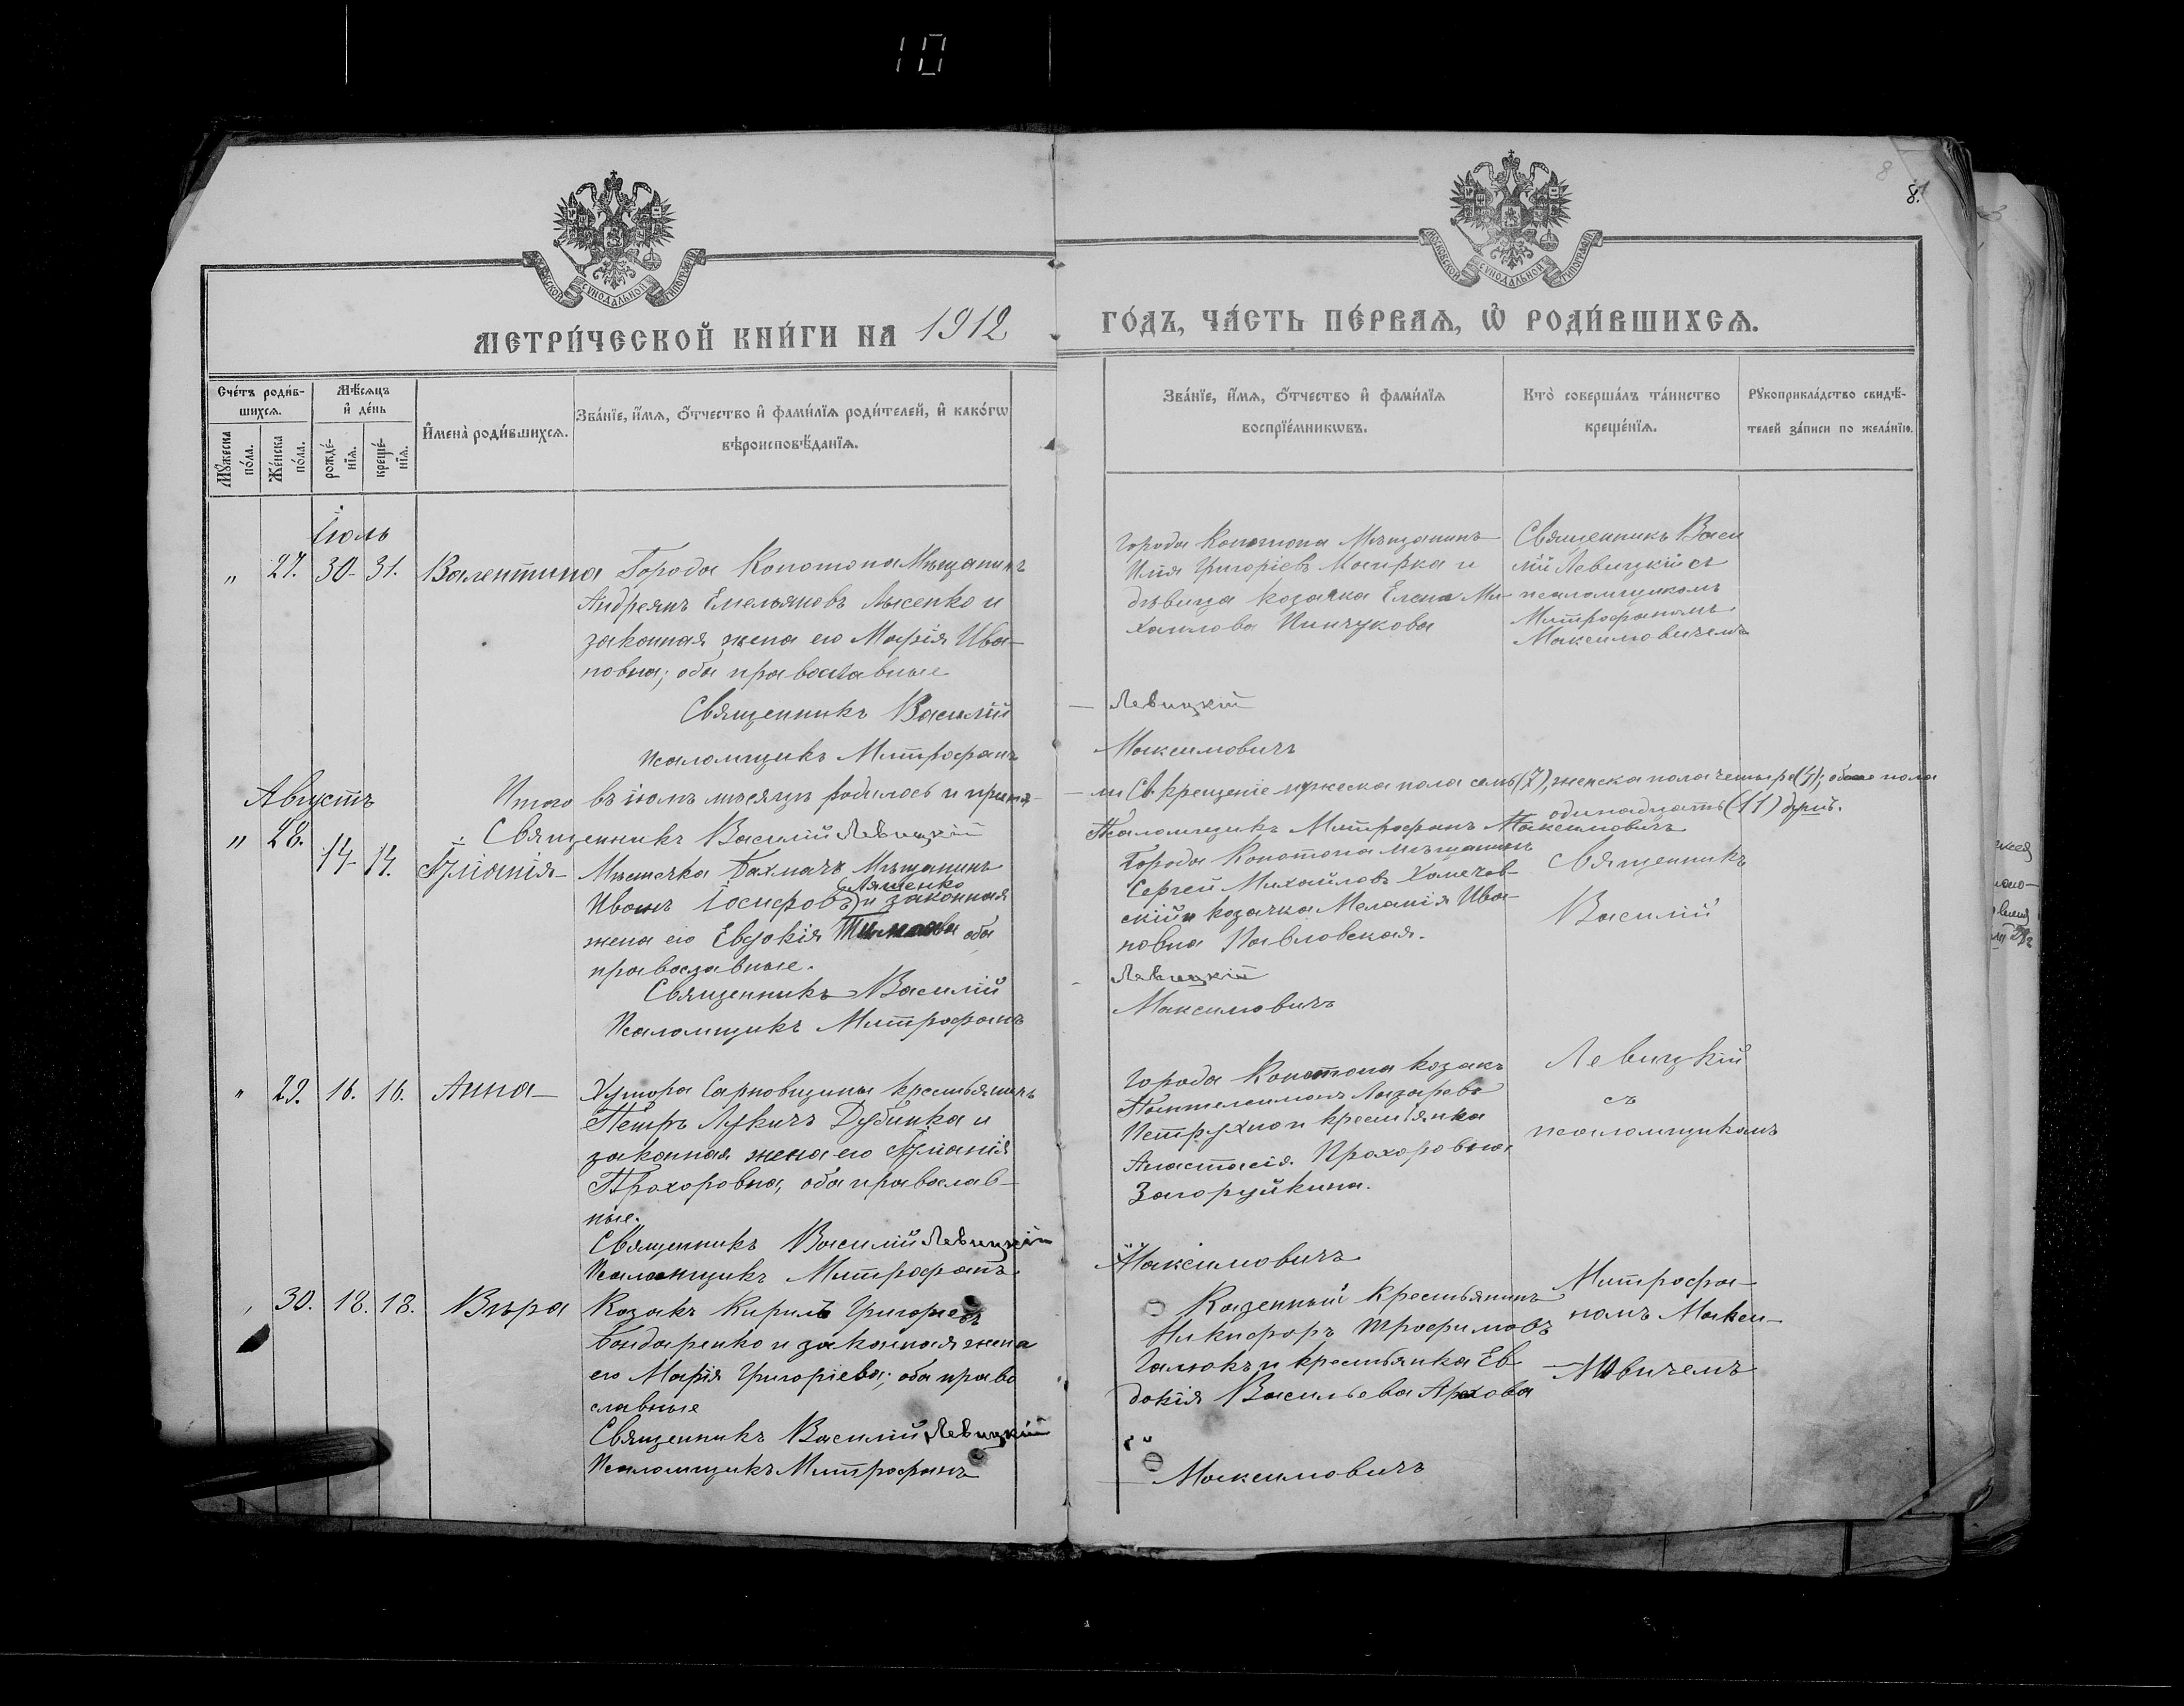 10
8
8.
МОСКОВСКОЙ СѴНОДАЛЬНОЙ ТИПОГРАФІИ
МОСКОВСКОЙ СѴНОДАЛЬНОЙ ТИПОГРАФІИ
МЕТРИ́ЧЕСКОЙ КНИ́ГИ НА 1912
ГО́ДЪ, ЧА́СТЬ ПЕ́РВАѦ, Ѡ҆ РОДИ́ВШИХСѦ.
Сче́тъ роди́в-
шихсѧ.
Мꙋ́жеска
по́ла.
Же́нска
по́ла.
Мѣ́сѧцъ
и҆ де́нь
рожде́-
нїѧ.
креще́-
нїѧ.
И҆мена̀ роди́вшихсѧ.
Зва́нїе, и҆́мѧ, ѻ҆́тчество и҆ фами́лїѧ роди́телей, и҆ како́гѡ
вѣроисповѣ́данїѧ.
Зва́нїе, и҆́мѧ, ѻ҆́тчество и҆ фами́лїѧ
воспрїе́мникѡвъ.
Кто̀ соверша́лъ та́инство
креще́нїѧ.
Рꙋкоприкла́дство свидѣ́-
телей за́писи по жела́нїю.
Іюль
" 27. 30. 31. Валентина
Города Конотопа Мѣщанинъ
Андреянъ Емельяновъ Лысенко и
законная жена его Марія Ива-
новна; оба православные
Священникъ Василій
Псаломщикъ Митрофанъ
Города Конотопа Мѣщанинъ
Илія Григоріевъ и
дѣвица козачка Елена Ми
хаилова Пинчукова
Священникъ Васи
лій Левицкій съ
псаломщикомъ
Митрофаномъ
Максимовичемъ
Левицкій
Максимовичъ
Итого въ іюлѣ мѣсяцѣ родилось и приня-
ли Св. крещеніе мужеска пола семь (7), женска пола четыре (4); обоего пола
одинадцать (11) душъ.
Священникъ Василій Левицкій
Псаломщикъ Митрофанъ Максимовичъ
Августъ
" 28. 14. 14. Іуліанія
Мѣстечка Бахмачъ Мѣщанинъ
Ляшенко
Иванъ Іосифовъ и законная
жена его Евдокія оба
православные.
Священникъ Василій
Псаломщикъ Митрофанъ
Города Конотопа мѣщанинъ
Сергей Михайловъ Хомечов-
скій и козачка Меланія Ива-
новна Павловская.
Левицкій
Максимовичъ
Священникъ
Василій
" 29. 16. 16. Анна
Хутора Сарновщины крестьянинъ
Петръ Лукичъ Дубинка и
законная жена его Іуліанія
Прохоровна, оба православ-
ные.
Священникъ Василій Левицкій
Псаломщикъ Митрофанъ
Города Конотопа козакъ
Пантелеимонъ Лазаревъ
Петрухно и крестьянка
Анастасія Прохоровна
Загоруйкина.
Максимовичъ
Левицкій
съ
псаломщикомъ
30. 18. 18. Вѣра
Козакъ Кирилъ Григорьевъ
Бондаренко и законная жена
его Марія Григоріева; оба право
славные
Священникъ Василій Левицкій
Псаломщикъ Митрофанъ
Казенный крестьянинъ
Никифоръ Трофимовъ
Галюкъ и крестьянка Ев
докія Васильева Арехова
Максимовичъ
Митрофа-
номъ Макси-
мовичемъ